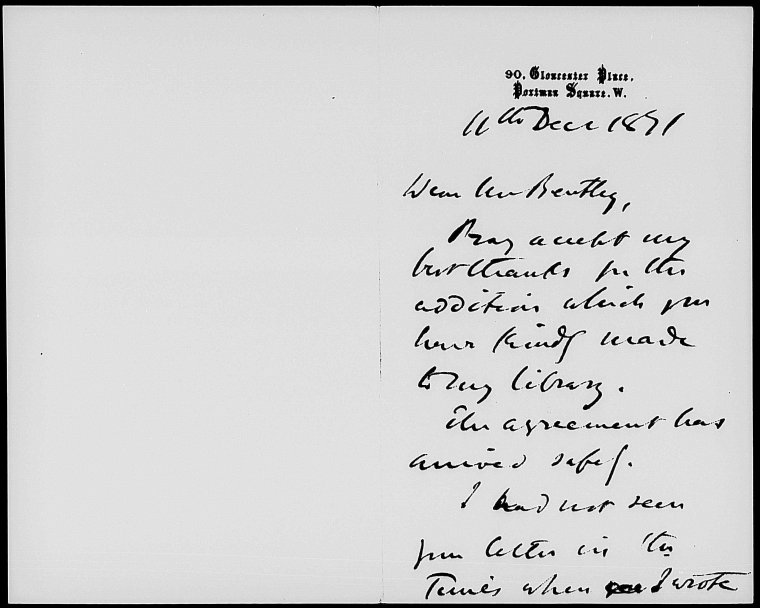 90, Gloucester Place,
Portman Square. W.
11th Dec 1871
Dear Mr Bentley,
Pray accept my
best thanks for the
addition which you
have kindly made
to my library.
The agreement has
arrived safely.
I had not seen
your letter in the
Times when I wrote